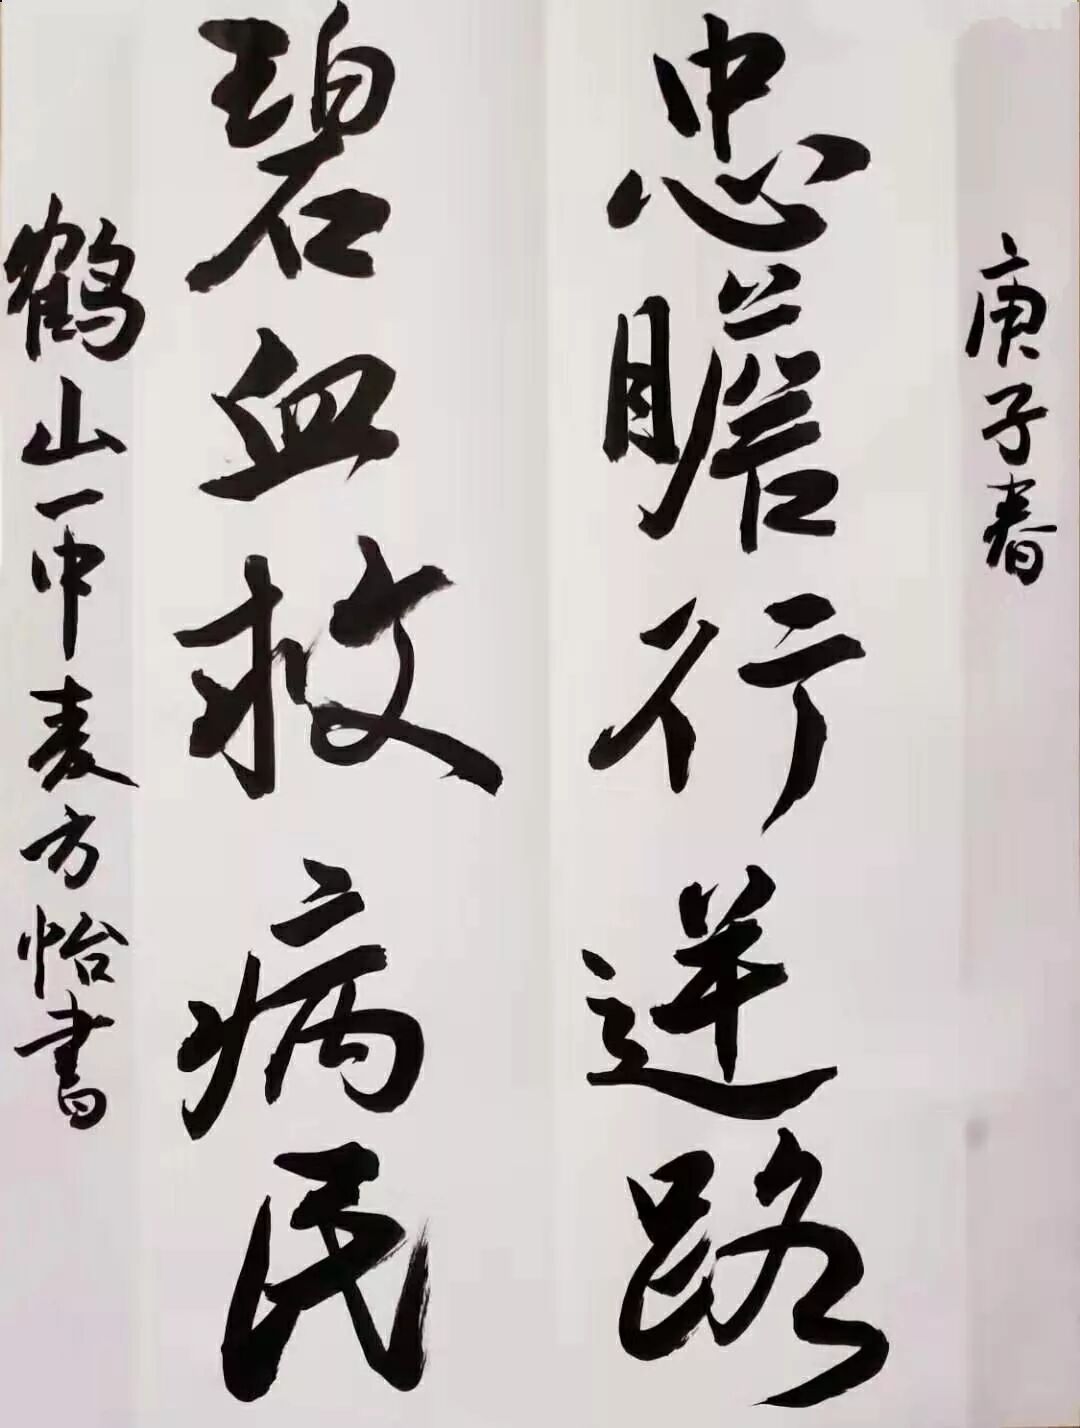 庚子春
忠瞻行逆路
碧血救病民
鹤山一中麦方怡书